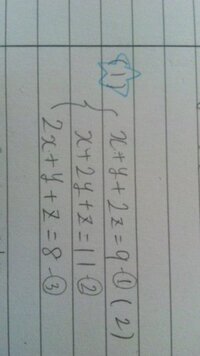 (1) x+y+2z=9-① (2)
x+2y+z=11-②
2x+y+z=8-③